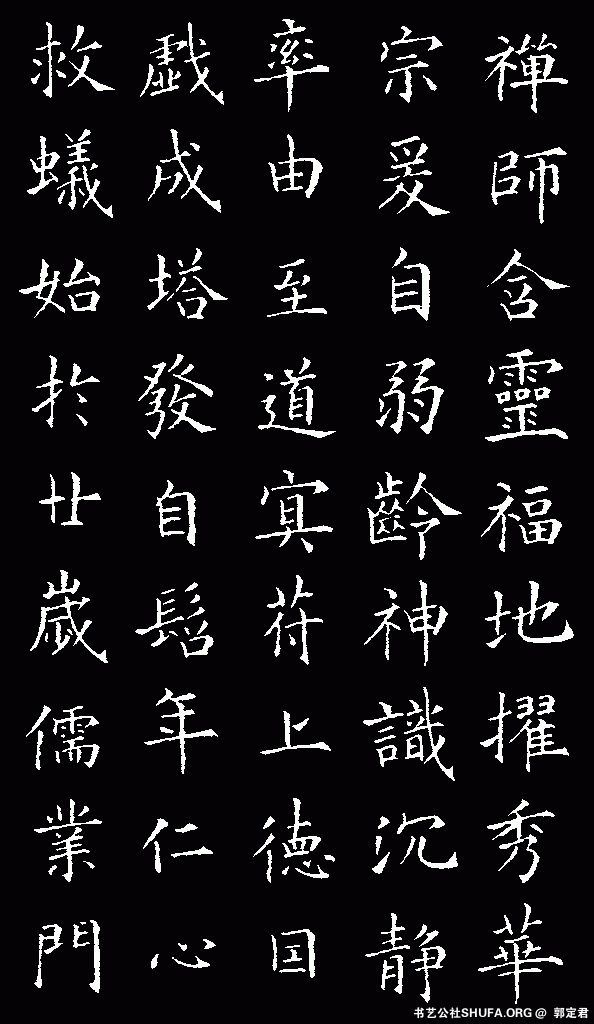 禪師含靈福地擢秀華
宗爰自弱齡神識沉靜
率由至道冥符上德因
戲成塔發自髫年仁心
救蟻始於廿歲儒業門
书艺公社SHUFA.ORG @ 郭定君